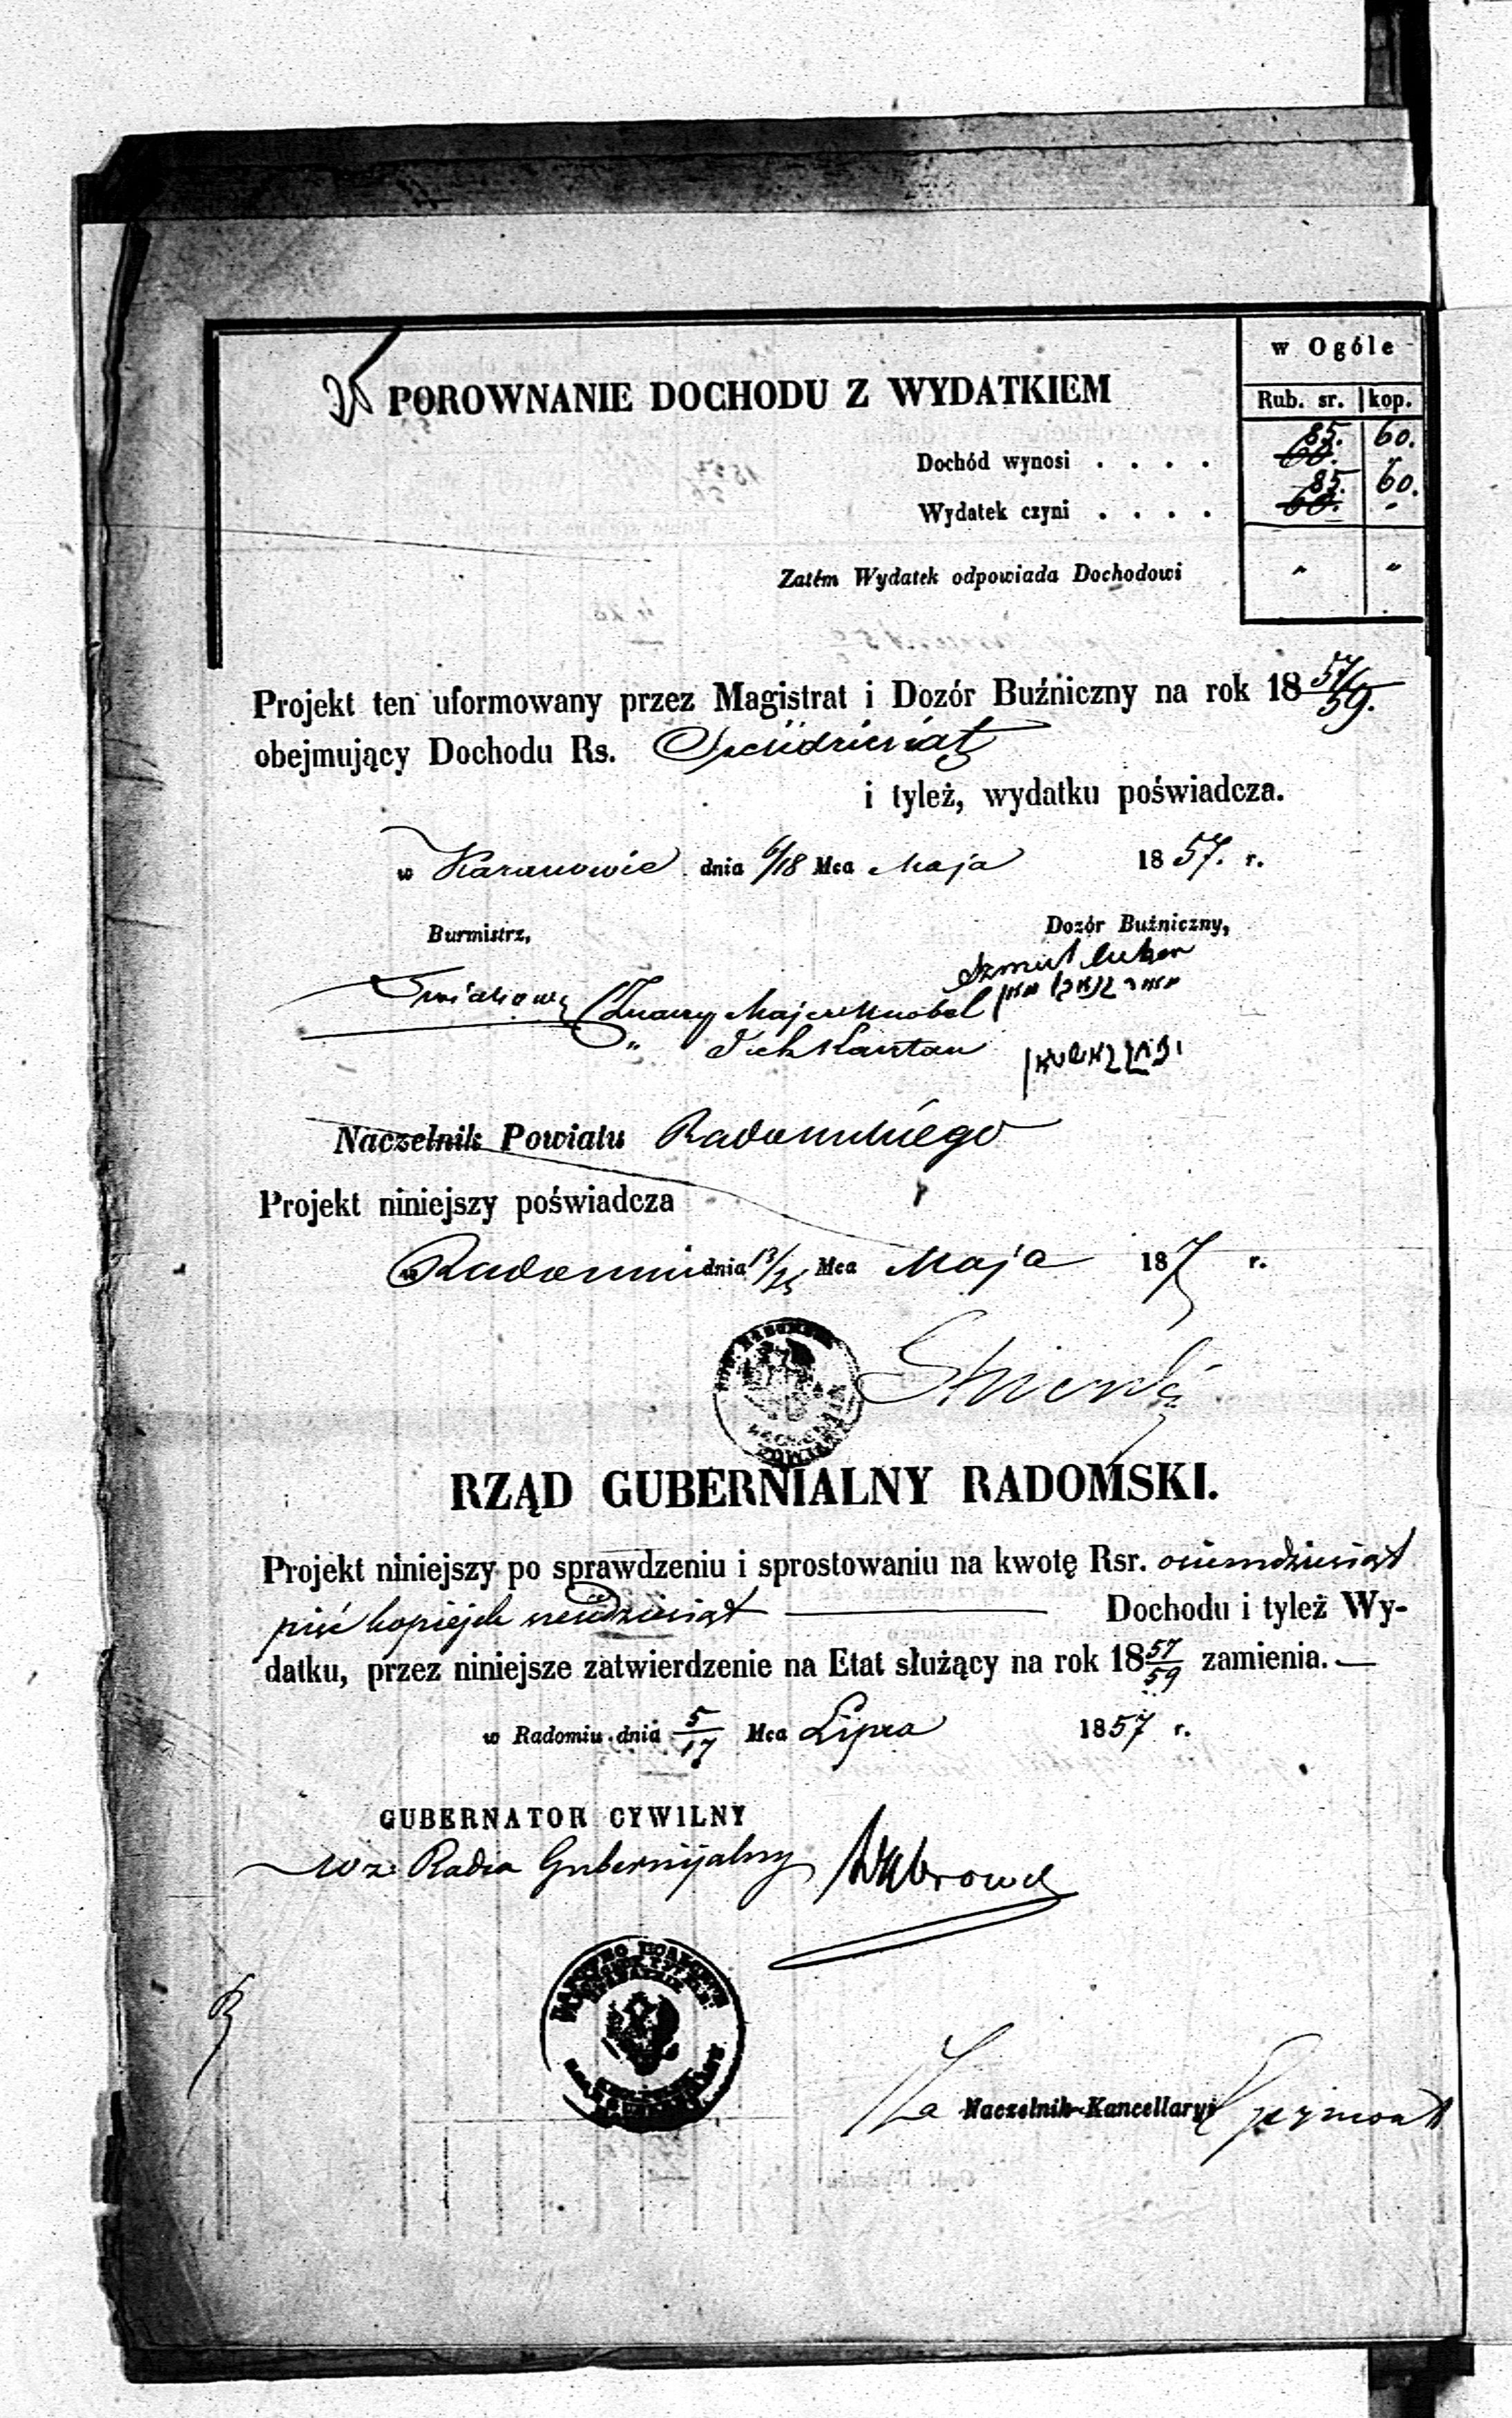 POROWNANIE DOCHODU Z WYDATKIEM
w Ogóle
Rub. sr. kop.
85. 60.
Dochód wynosi . . . . 60. "
85. 60.
Wydatek czyni . . . . 60. "
Zatém Wydatek odpowiada Dochodowi " "
Projekt ten uformowany przez Magistrat i Dozór Buźniczny na rok 1857/59.
obejmujący Dochodu Rs. Sześćdziesiąt
i tyleż, wydatku poświadcza.
w Kazanowie dnia 6/18 Mca Maja 1857. r.
Burmistrz,
Dozór Buźniczny,
Szmul
Majer Knobel
" Kartan
Naczelnik Powiatu Radomskiego
Projekt niniejszy poświadcza
w Radomiu dnia 13/25 Mca Maja 187 r.
RZĄD GUBERNIALNY RADOMSKI.
Projekt niniejszy po sprawdzeniu i sprostowaniu na kwotę Rsr. ośiemdziesiąt
pięć kopiejek sześćdziesiąt Dochodu i tyleż Wy-
datku, przez niniejsze zatwierdzenie na Etat służący na rok 1857/59 zamienia.
w Radomiu dnia 5/17 Mca Lipca 1857 r.
GUBERNATOR CYWILNY
wz. Radca Gubernijalny
Za Naczelnik Kancellaryi